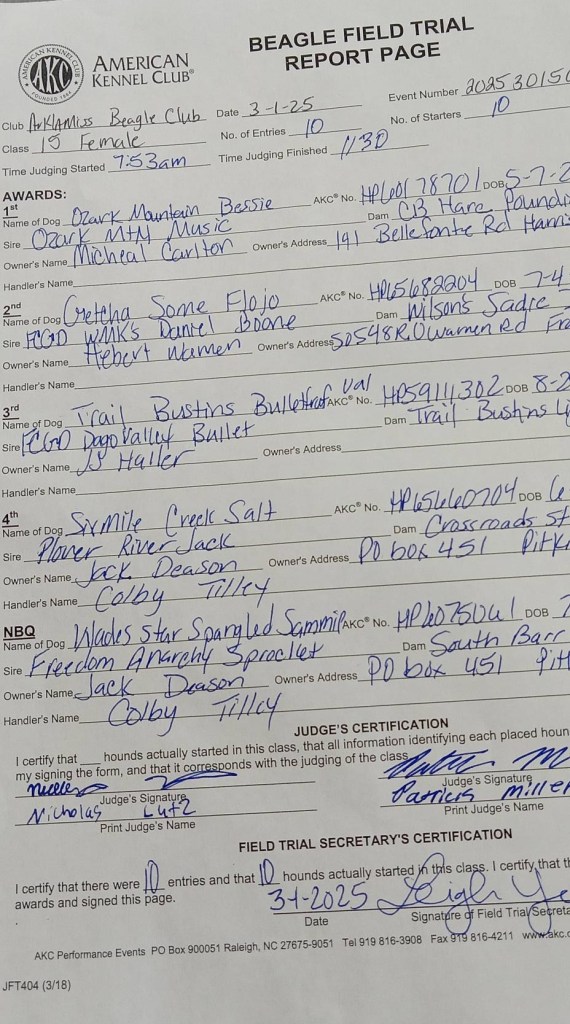 BEAGLE FIELD TRIAL
REPORT PAGE
AMERICAN KENNEL CLUB
AKC
FOUNDED 1884
AMERICAN
KENNEL CLUB®
Club ArkLAMiss Beagle Club Date 3-1-25 Event Number 202530150
Class 15 Female No. of Entries 10 No. of Starters 10
Time Judging Started 7:53am Time Judging Finished 1130
AWARDS:
1st
Name of Dog Ozark Mountain Bessie AKC® No. HP60178701 DOB 5-7-2
Sire Ozark MtN Music Dam CB Hare Poundi
Owner's Name Micheal Carlton Owner's Address 191 Bellefonte Rd Harris
Handler's Name
2nd
Name of Dog Gretcha Some Flojo AKC® No. HP65682204 DOB 7-4
Sire FCGD WMK's Daniel Boone Dam Wilson's Sadie
Owner's Name Hebert Warmen Owner's Address 50548 R.O Warmen Rd Fra
Handler's Name
3rd
Name of Dog Trail Bustins Val AKC® No. HP59111302 DOB 8-2
Sire FCGD Dago Valley Bullet Dam Trail Bustins
Owner's Name JJ Haller Owner's Address
Handler's Name
4th
Name of Dog Six mile Creek Salt AKC® No. HP65660704 DOB 6
Sire Plover River Jack Dam Crossroads St
Owner's Name Jack Deason Owner's Address PO box 451 Pitki
Handler's Name Colby Tilley
NBQ
Name of Dog Wades Star Spangled Sammi AKC® No. DOB 7
Sire Freedom Anarchy Sprocket Dam South Barr
Owner's Name Jack Deason Owner's Address PO box 451 Pitt
Handler's Name Colby Tilley
JUDGE'S CERTIFICATION
I certify that ___ hounds actually started in this class, that all information identifying each placed houn
my signing the form, and that it corresponds with the judging of the class.
Judge's Signature Judge's Signature
Nicholas Lutz Patricia Miller
Print Judge's Name Print Judge's Name
FIELD TRIAL SECRETARY'S CERTIFICATION
I certify that there were 10 entries and that 10 hounds actually started in this class. I certify that th
awards and signed this page.
3-1-2025 Leigh
Date Signature of Field Trial Secreta
AKC Performance Events PO Box 900051 Raleigh, NC 27675-9051 Tel 919 816-3908 Fax 919 816-4211 www.akc.o
JFT404 (3/18)